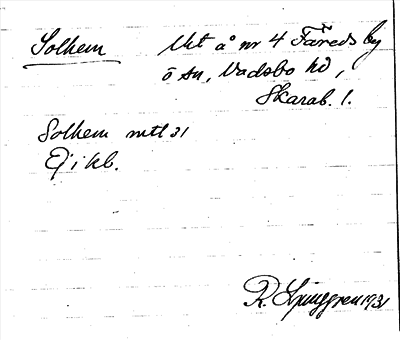 Solhem
Utt å nr 4 Fåreds by
ö sn, Vadsbo hd,
Skarab. l.
Solhem mtl 31
Ej i kb.
R. Ljunggren 1931